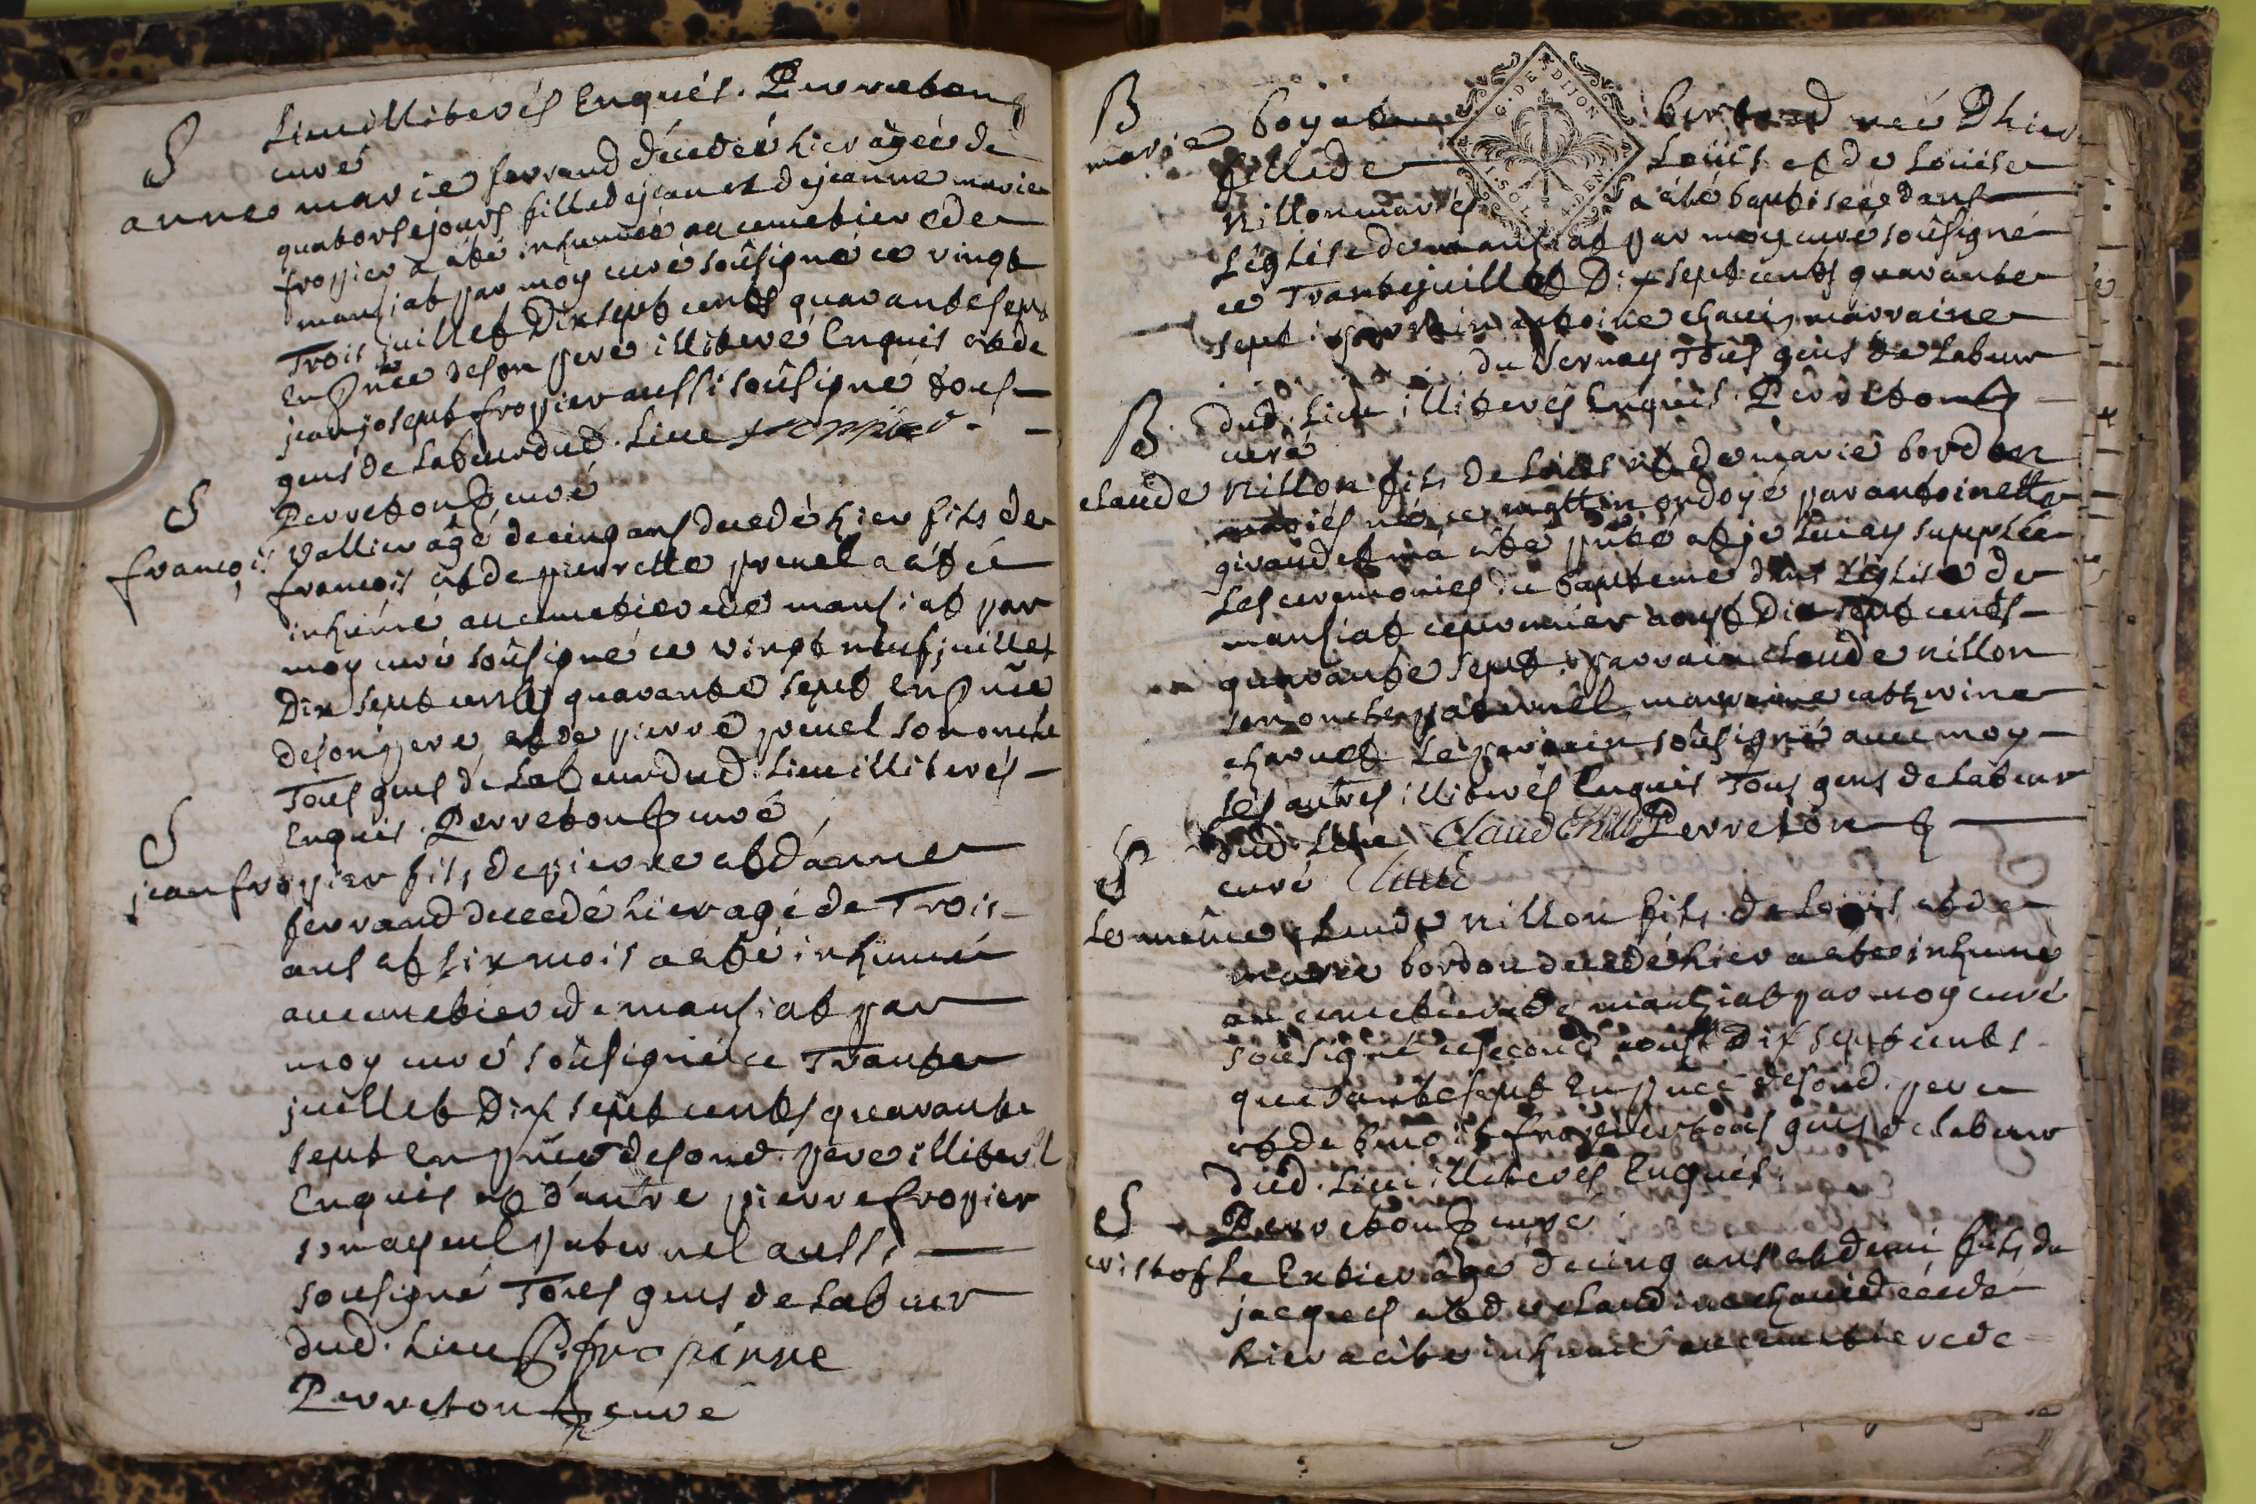 Lieu illiterés Enquis. Perreton
curé
S
anne marie ferrand décedée hier âgée de
quatorse jours fille de jean et de jeanne marie
froppier a été inhumée au cemetiere de
manziat par moy curé soûsigné ce vingt
Trois juillet Dix sept cents quarante sept
En pnce de son pere illiteré Enquis et de
jean joseph fropier aussi soûsigné tous
gens de Labeur dud. Lieu froppier
Perreton curé
S
francois Vallier âgé de cinq ans decedé hier fils de
francois et de pierrette prevel a été
inhumé au cemetiere de manziat par
moy curé soûsigné ce vingt neuf juillet
Dix sept cents quarante sept En pnce
de son pere et de pierre prevel son oncle
Tous gens de Labeur dud. Lieu illiterés
Enquis. Perreton curé
S
jean fropier fils de pierre et d'anne
ferrand decedé hier agé de Trois
ans et six mois a eté inhumé
au cemetiere de manziat par
moy curé soûsigné ce Trante
juillet Dix sept cents quarante
sept En pnce de sond. pere illiteré
Enquis et d'autre pierre fropier
son ayeul paternel aussi
sousigné Tous gens de Labeur
dud. Lieu P. fropierre
Perreton curé
G. DE DIJON
B
marie boyat bertend née D hier
fille de Loüis et de Loüise
Nillon mariés a été baptisée dans
L'église de manziat par moy curé soûsigné
ce Trante juillet Dix sept cents quarante
sept. parrain antoine chavi, marraine
du Vernay Tous gens de Labeur
dud. Lieu illiterés Enquis. Perreton
curé
B.
claude Nillon fils de Loüis et de marie bordon
mariés né ce mattin ondoyé par antoinette
giraudet m'a été pnté et je Luiay supplée
Les ceremonies du baptéme dans L'église de
manziat ce premier aoust Dix sept cents
quarante sept. parrain claude nillon
son oncle paternel, marraine catherine
charnet Le parrain soûsigné avec moy
Les autres illiterés Enquis Tous gens de Labeur
dud. Lieu Claude Perreton
curé
S
Le même claude nillon fils de Loüis et de
marie bordon decedé hier a eté inhumé
au cemetiere de manziat par moy curé
soûsigné ce second aoust Dix sept cents
quarante sept En pnce de sond. pere
et de benoit fropier tous gens de Labeur
dud. Lieu illiterés Enquis.
Perreton curé
S
cristofle Extier âgé de cinq ans et demi fils de
jacques et de claudine chavi décedé
hier a été inhumé au cemetiere de